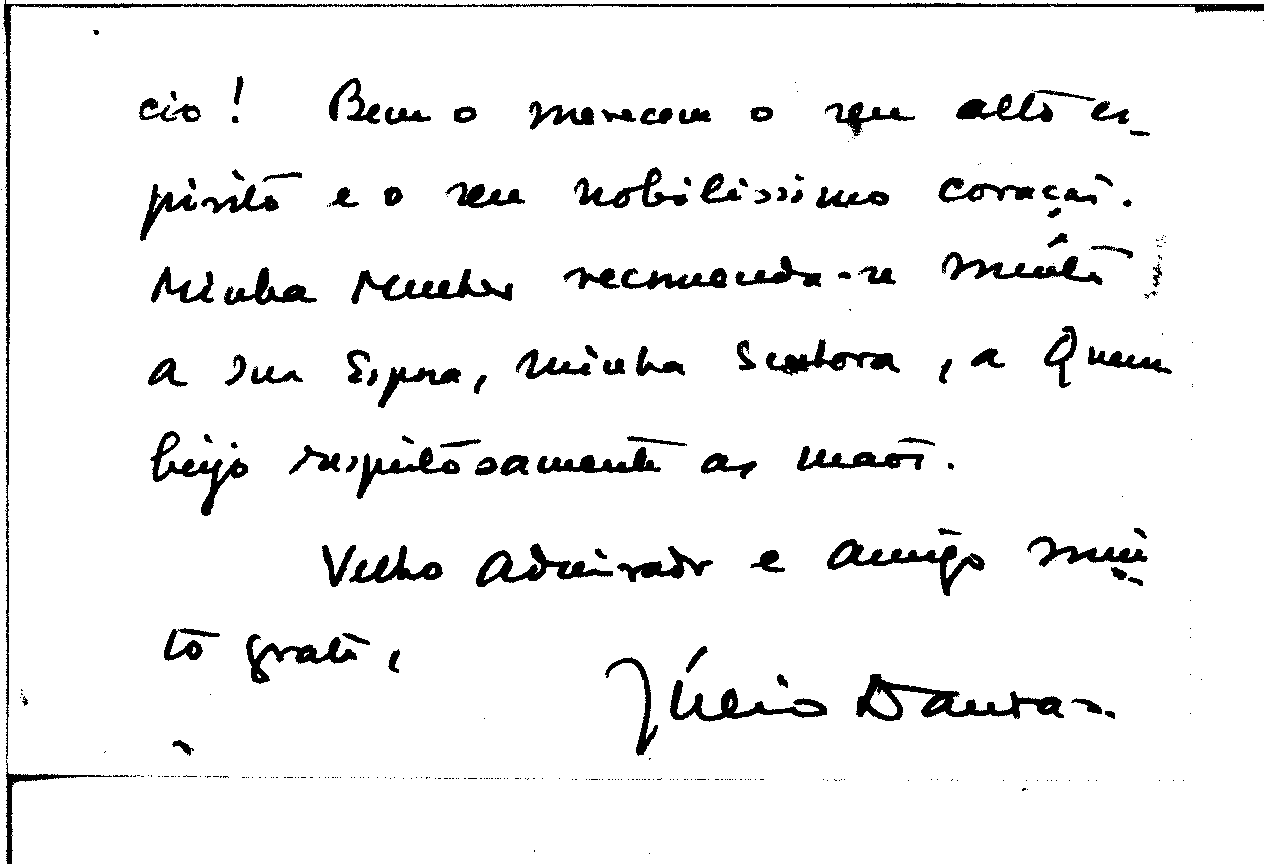 cio! Bem o merecem o seu alto es-
pirito e o seu nobilissimo coração.
Minha Mulher recomenda-se muito
a sua Esposa, minha Senhora, a Quem
beijo respeitosamente as mãos.
Velho admirador e amigo mui-
to grato,
Júlio Dantas.